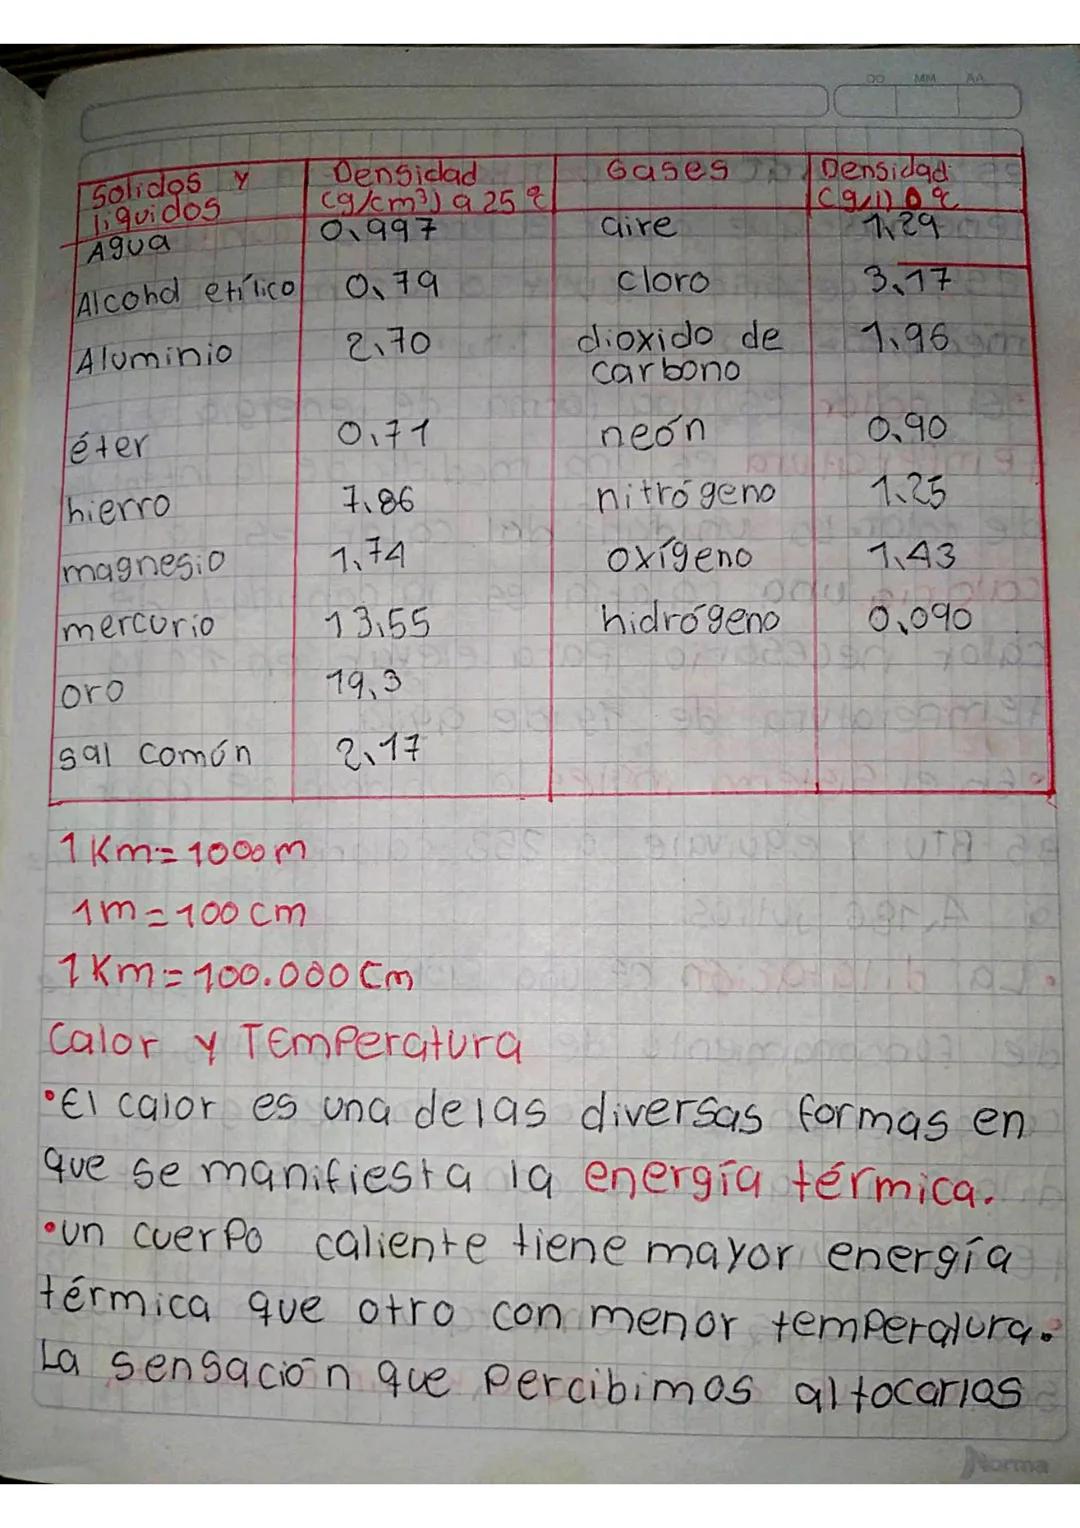 DD MM AA
Solidos y líquidos | Densidad (g/cm³) a 25 º | Gases | Densidad (g/l) 0 º
Agua | 0,997 | aire | 1,29
Alcohol etílico | 0,79 | cloro | 3,17
Aluminio | 2,70 | dioxido de carbono | 1,96
éter | 0,71 | neón | 0,90
hierro | 7,86 | nitrógeno | 1,25
magnesio | 1,74 | oxígeno | 1,43
mercurio | 13,55 | hidrógeno | 0,090
oro | 19,3
sal común | 2,17
1 Km = 1000 m
1 m = 100 cm
1 Km = 100.000 Cm
Calor y TEmPeratura
•El calor es una de las diversas formas en
que se manifiesta la energía térmica.
•un cuerPo caliente tiene mayor energía
térmica que otro con menor temperatura.
La sensación que Percibimos al tocarlas
Norma